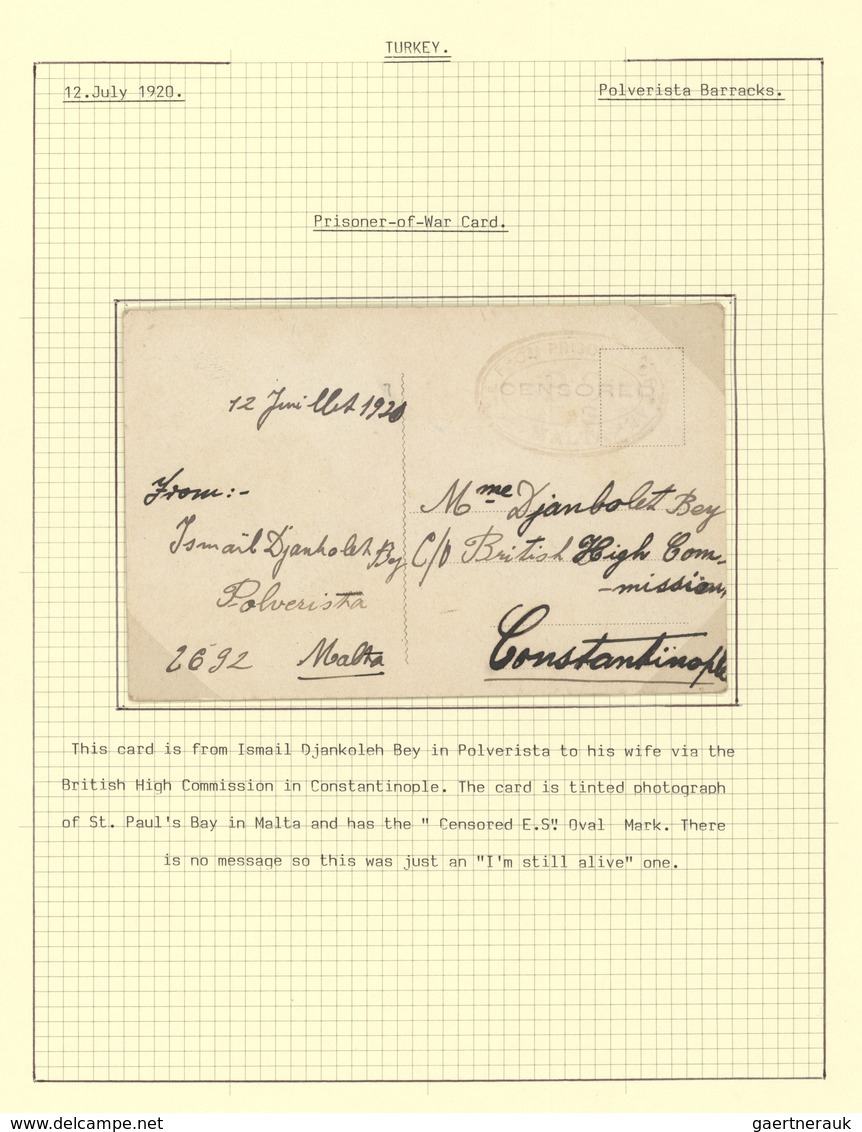 TURKEY.
12.July 1920.
Polverista Barracks.
Prisoner-of-War Card.
FROM PRISO
CENSORED
MALT
12 Juillet 1920
From:-
Ismaïl Djanbolet Bey
Polverista
2692 Malta
Mme Djanbolet Bey
C/o British High Com-
-mission,
Constantinople
This card is from Ismail Djankoleh Bey in Polverista to his wife via the
British High Commission in Constantinople. The card is tinted photograph
of St. Paul's Bay in Malta and has the " Censored E.S". Oval Mark. There
is no message so this was just an "I'm still alive" one.
gaertnerauk